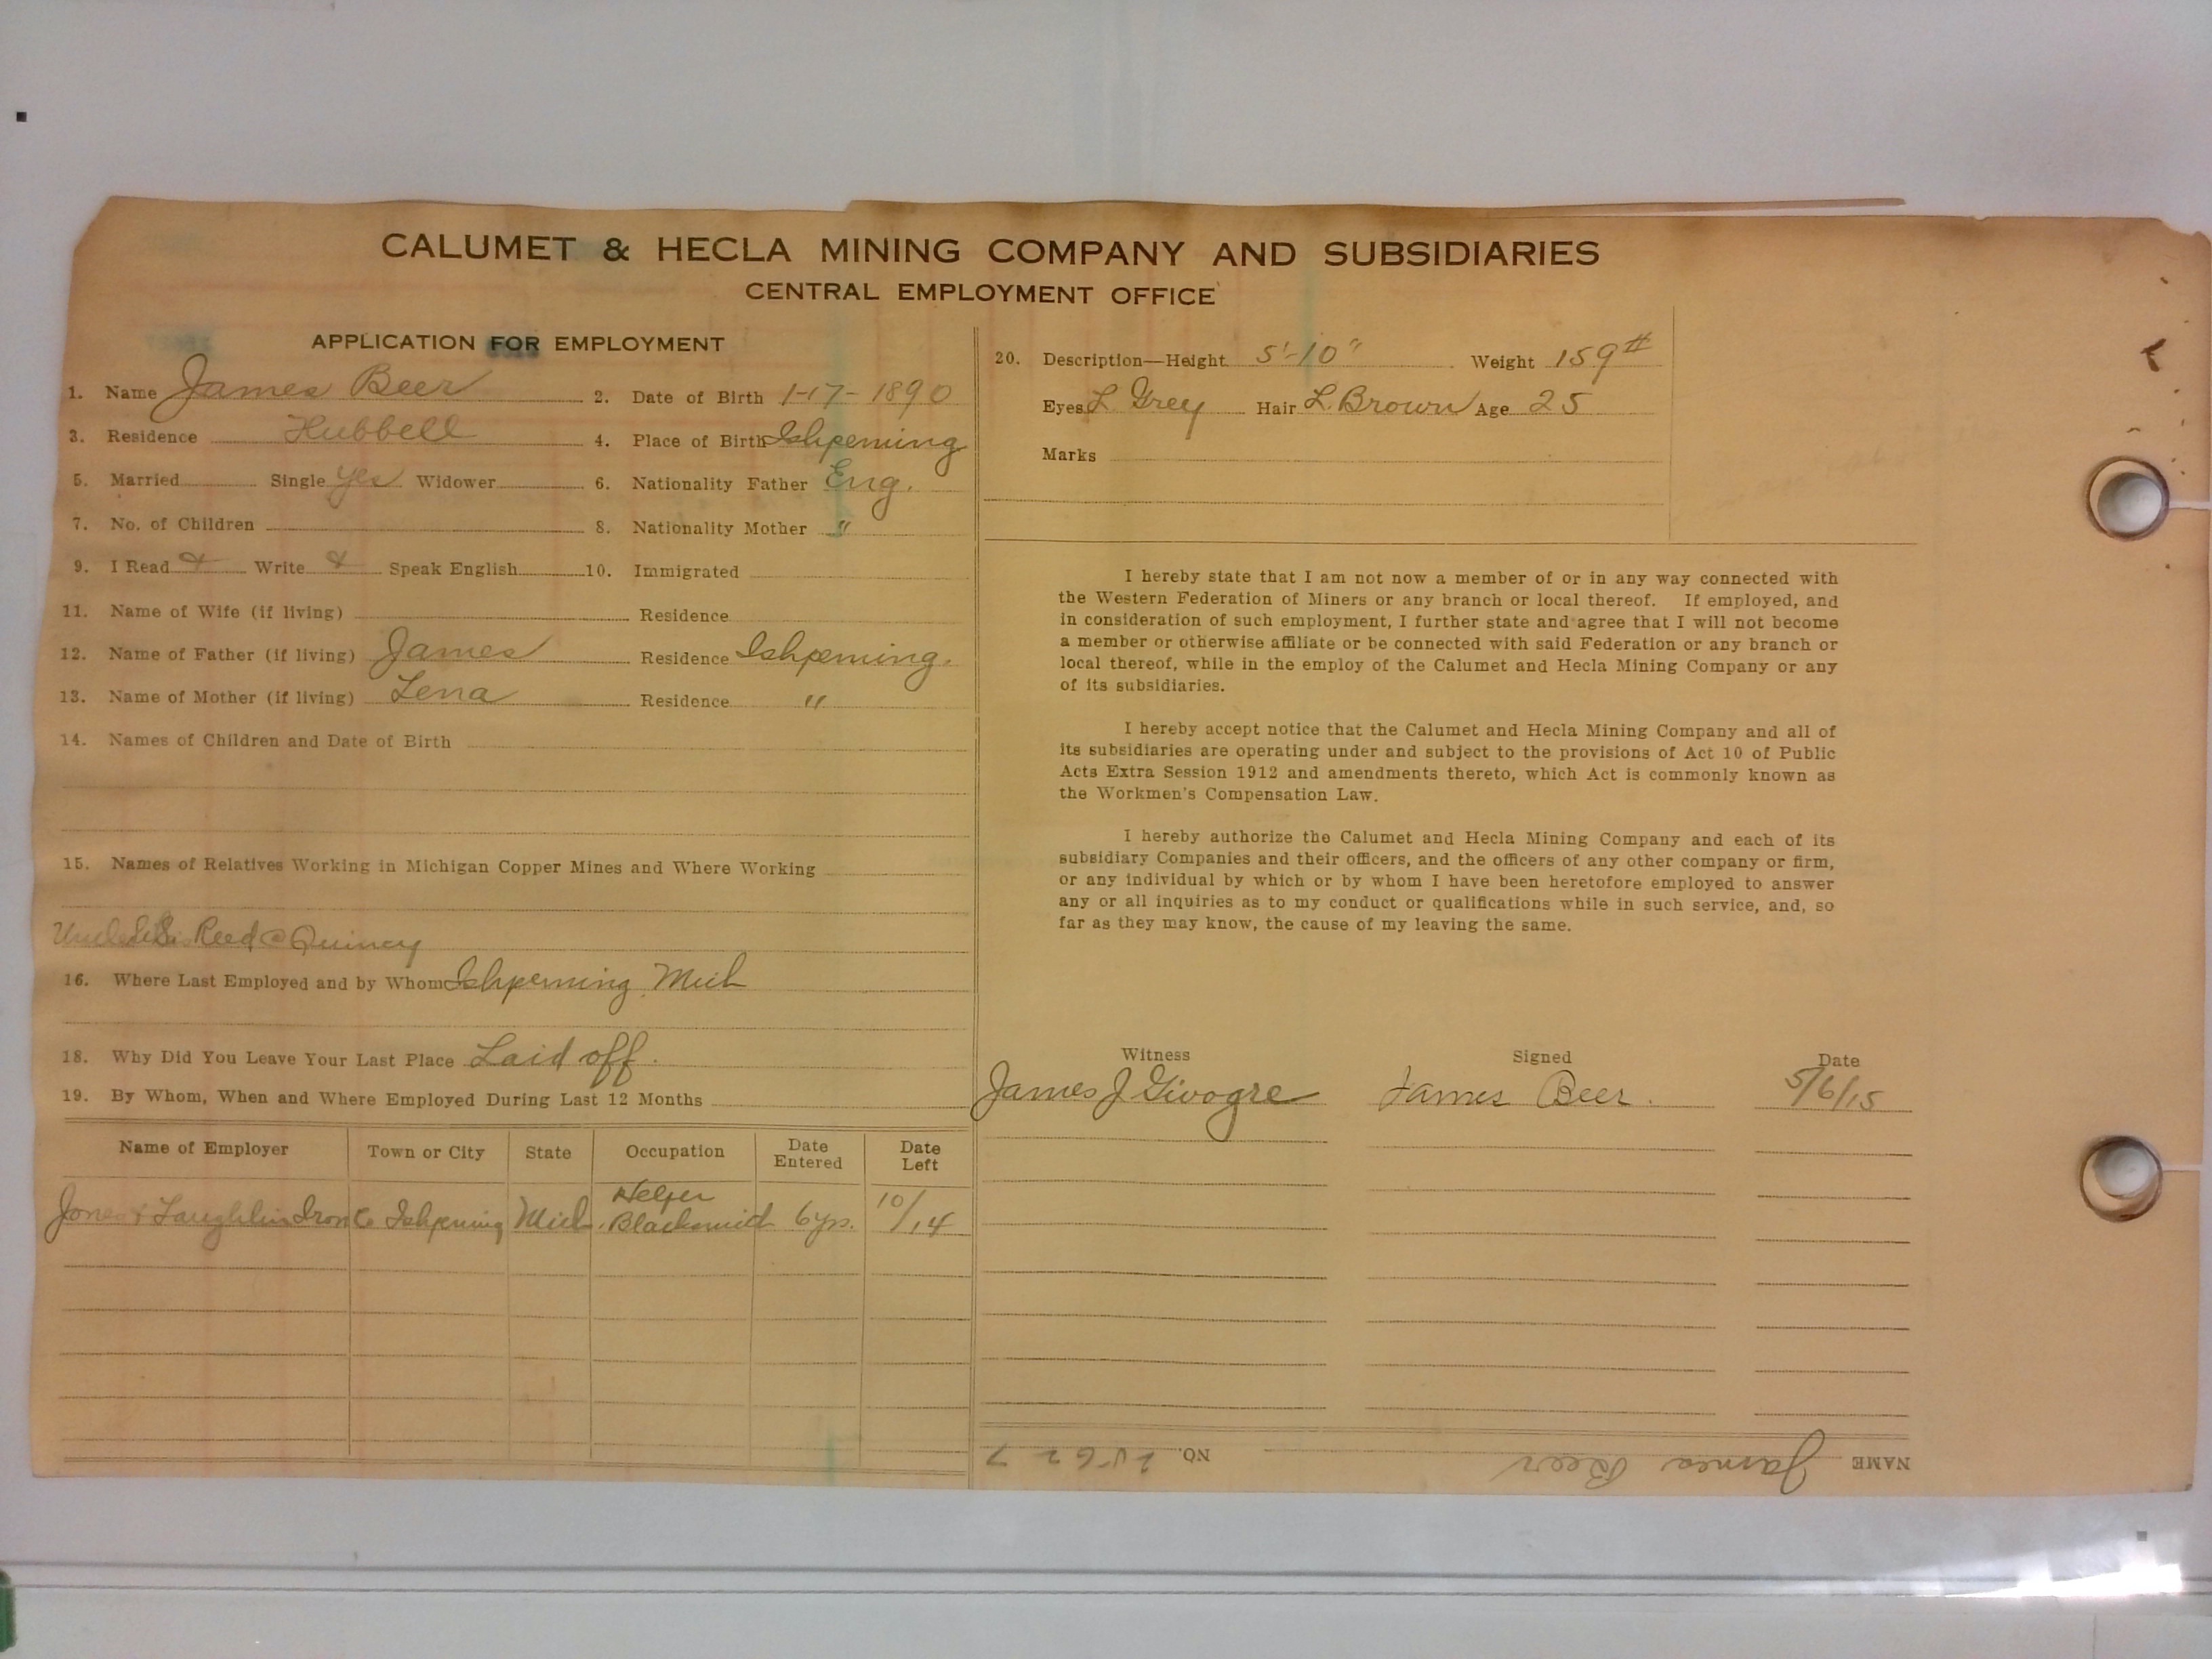 CALUMET & HECLA MINING COMPANY AND SUBSIDIARIES
CENTRAL EMPLOYMENT OFFICE
APPLICATION FOR EMPLOYMENT
1. Name James Beer 2. Date of Birth 1-17-1890
3. Residence Hubbell 4. Place of Birth Ishpeming
5. Married Single Yes Widower 6. Nationality Father Eng.
7. No. of Children 8. Nationality Mother "
9. I Read & Write & Speak English 10. Immigrated
11. Name of Wife (if living) Residence
12. Name of Father (if living) James Residence Ishpeming.
13. Name of Mother (if living) Lena Residence "
14. Names of Children and Date of Birth
15. Names of Relatives Working in Michigan Copper Mines and Where Working
Uncle Reed @ Quincy
16. Where Last Employed and by Whom Ishpeming Mich
18. Why Did You Leave Your Last Place Laid off.
19. By Whom, When and Where Employed During Last 12 Months
Name of Employer Town or City State Occupation Date Entered Date Left
Jones & Laughlin Iron Co Ishpeming Mich. Helper Blacksmid 6 yrs. 10/14
20. Description—Height 5'-10" Weight 159#
Eyes L. Grey Hair L. Brown Age 25
Marks
I hereby state that I am not now a member of or in any way connected with
the Western Federation of Miners or any branch or local thereof. If employed, and
in consideration of such employment, I further state and agree that I will not become
a member or otherwise affiliate or be connected with said Federation or any branch or
local thereof, while in the employ of the Calumet and Hecla Mining Company or any
of its subsidiaries.
I hereby accept notice that the Calumet and Hecla Mining Company and all of
its subsidiaries are operating under and subject to the provisions of Act 10 of Public
Acts Extra Session 1912 and amendments thereto, which Act is commonly known as
the Workmen's Compensation Law.
I hereby authorize the Calumet and Hecla Mining Company and each of its
subsidiary Companies and their officers, and the officers of any other company or firm,
or any individual by which or by whom I have been heretofore employed to answer
any or all inquiries as to my conduct or qualifications while in such service, and, so
far as they may know, the cause of my leaving the same.
Witness Signed Date
James J Givogre James Beer. 5/6/15
NAME James Beer NO. 25627